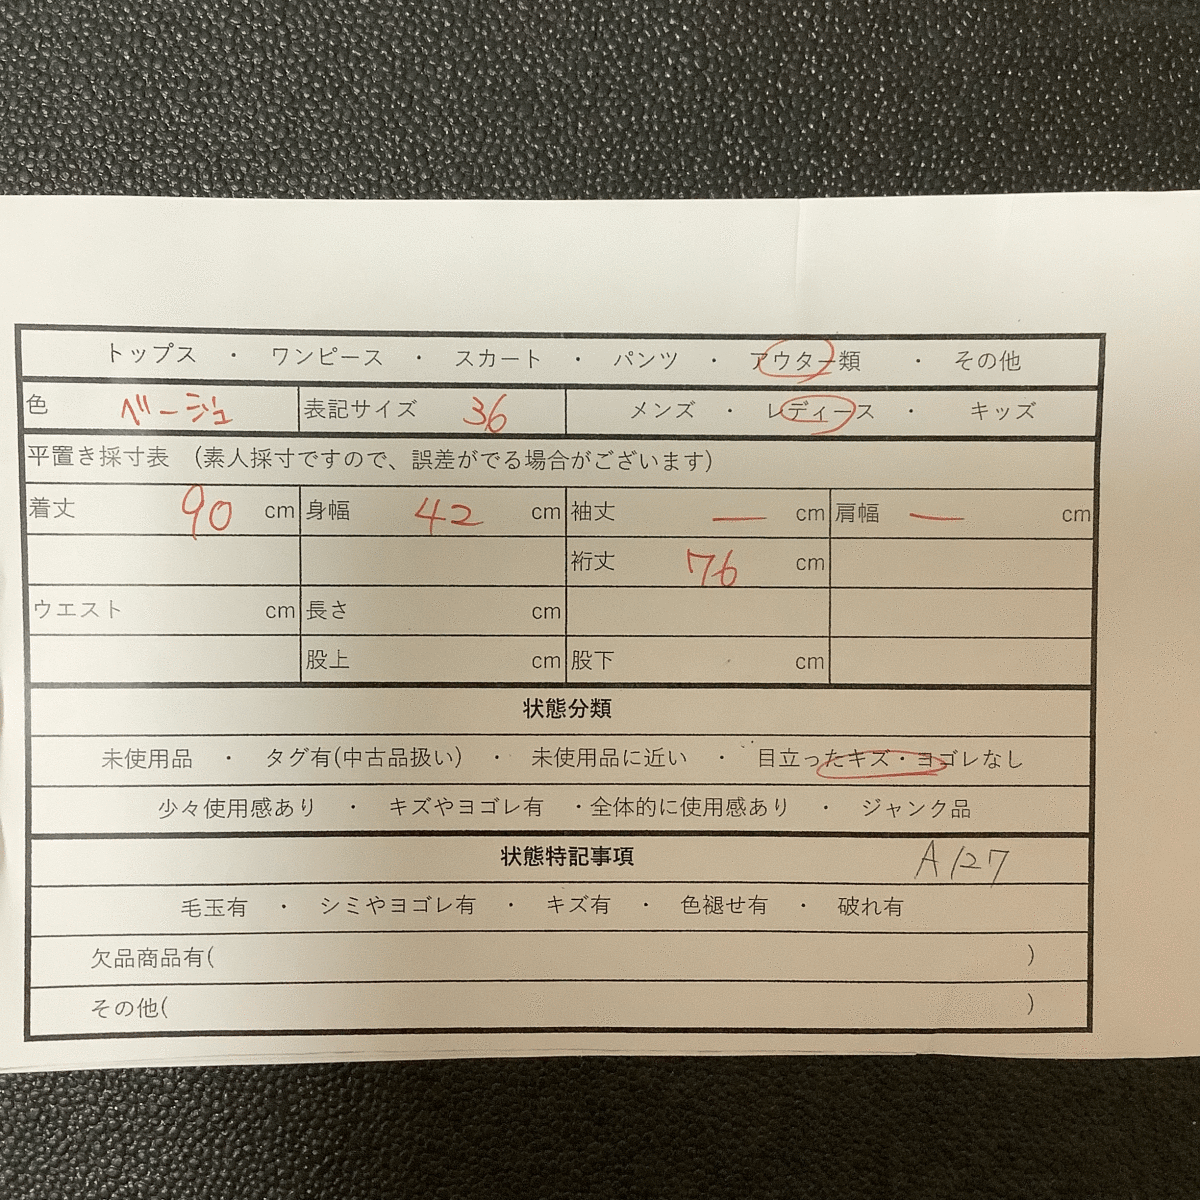 トップス ・ ワンピース ・ スカート ・ パンツ ・ アウター類 ・ その他
色 ベージュ 表記サイズ 36 メンズ ・ レディース ・ キッズ
平置き採寸表 (素人採寸ですので、誤差がでる場合がございます)
着丈 90 cm 身幅 42 cm 袖丈 — cm 肩幅 — cm
裄丈 76 cm
ウエスト cm 長さ cm
股上 cm 股下 cm
状態分類
未使用品 ・ タグ有(中古品扱い) ・ 未使用品に近い ・ 目立ったキズ・ヨゴレなし
少々使用感あり ・ キズやヨゴレ有 ・全体的に使用感あり ・ ジャンク品
状態特記事項 A127
毛玉有 ・ シミやヨゴレ有 ・ キズ有 ・ 色褪せ有 ・ 破れ有
欠品商品有( )
その他( )